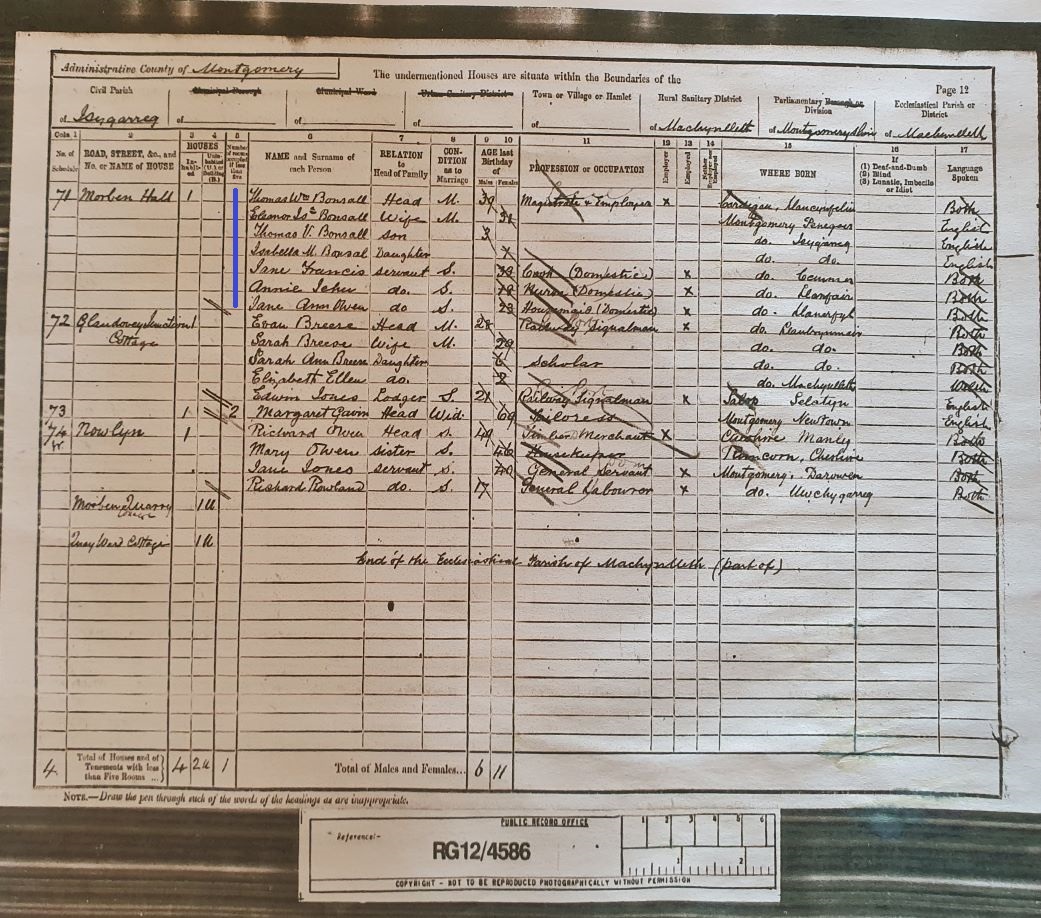 Administrative County of Montgomery
The undermentioned Houses are situate within the Boundaries of the
Page 12
Civil Parish
Municipal Borough
Municipal Ward
Urban Sanitary District
Town or Village or Hamlet
Rural Sanitary District
Parliamentary Borough or Division
Ecclesiastical Parish or District
of Isygarreg
of
of
of
of
of Machynlleth
of Montgomeryshire
of Machynlleth
Cols. 1 2 3 4 5 6 7 8 9 10 11 12 13 14 15 16 17
No. of Schedule
ROAD, STREET, &c., and No. or NAME of HOUSE
HOUSES
Inhabited
Uninhabited (U.) or Building (B.)
Number of rooms occupied if less than five
NAME and Surname of each Person
RELATION to Head of Family
CONDITION as to Marriage
AGE last Birthday of
Males Females
PROFESSION or OCCUPATION
Employer
Employed
Neither Employer nor Employed
WHERE BORN
If (1) Deaf-and-Dumb (2) Blind (3) Lunatic, Imbecile or Idiot
Language Spoken
71 Morben Hall 1 Thomas Wm Bonsall Head M. 39 Magistrate & Employer x Cardigan, Both
Eleanor Isa Bonsall Wife M. 31 Montgomery Penegoes English
Thomas V. Bonsall son 3 do. Isygarreg English
Isabella M. Bonsal Daughter do. do. English
Jane Francis servant S. 33 Cook (Domestic) x do. Cemmes Both
Annie do. S. (Domestic) x do. Llanfair Both
Jane Ann Owen do S. 23 Housemaid (Domestic) x do. Llanerfyl Both
72 Glandovey Junction Cottage 1 Evan Breese Head M. 28 Railway Signalman x do. Llanbrynmair Both
Sarah Breese Wife M. 29 do. do. Both
Sarah Ann Breese Daughter 6 Scholar do. do. Both
Elizabeth Ellen do. do. Machynlleth Welsh
Edwin Jones Lodger S. 21 Railway Signalman x Salop Selatyn English
73 1 2 Margaret Gavin Head Wid. 69 Tailoress Montgomery Newtown English
74 Nowlyn 1 Richard Owen Head S. 49 Timber Merchant x Both
Mary Owen sister S. 46 Housekeeper Runcorn, Cheshire Both
Jane Jones servant S. 40 General Servant x Montgomery, Darowen Both
Richard Rowland do. S. 17 General Labourer x do. Uwchygarreg Both
Morben Quarry 1U
Quay Ward Cottage 1U
End of the Ecclesiastical Parish of Machynlleth (part of)
4 Total of Houses and of Tenements with less than Five Rooms ... 4 2U 1 Total of Males and Females... 6 11
NOTE.—Draw the pen through such of the words of the headings as are inappropriate.
PUBLIC RECORD OFFICE
Reference:-
RG12/4586
1 2 3 4 5 6
1 2
COPYRIGHT - NOT TO BE REPRODUCED PHOTOGRAPHICALLY WITHOUT PERMISSION